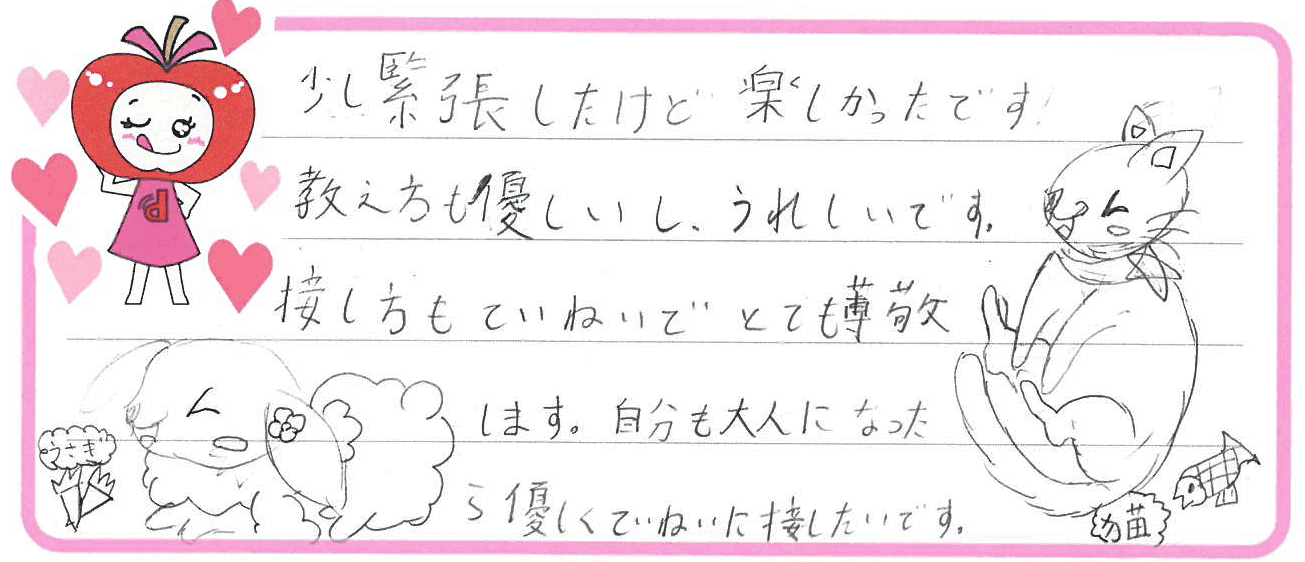 少し緊張したけど楽しかったです!
教え方も優しいし、うれしいです。
接し方もていねいでとても尊敬
します。自分も大人になった
ら優しくていねいに接したいです。
うさぎ
猫